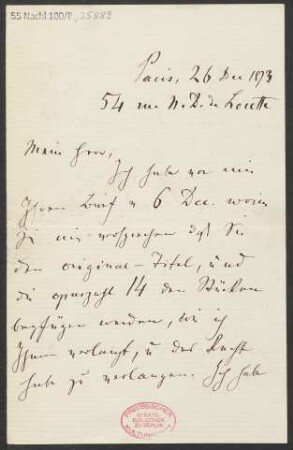 55 Nachl 100/B, 25889
Paris, 26 Dec 1873
54 rue N. D. de Lorette
Mein Herr,
Ich habe vor mir
Ihren Brief v 6 Dec. worin
Sie mir versprechen daß Sie
den original-Titel, und
die opuszahl 14 den Stücken
beyfügen werden, wie ich
Ihnen verlangt, u das Recht
habe zu verlangen. Ich habe
PREUSSISCHER
STAATS-
BIBLIOTHEK
ZU BERLIN
KULTURBESITZ